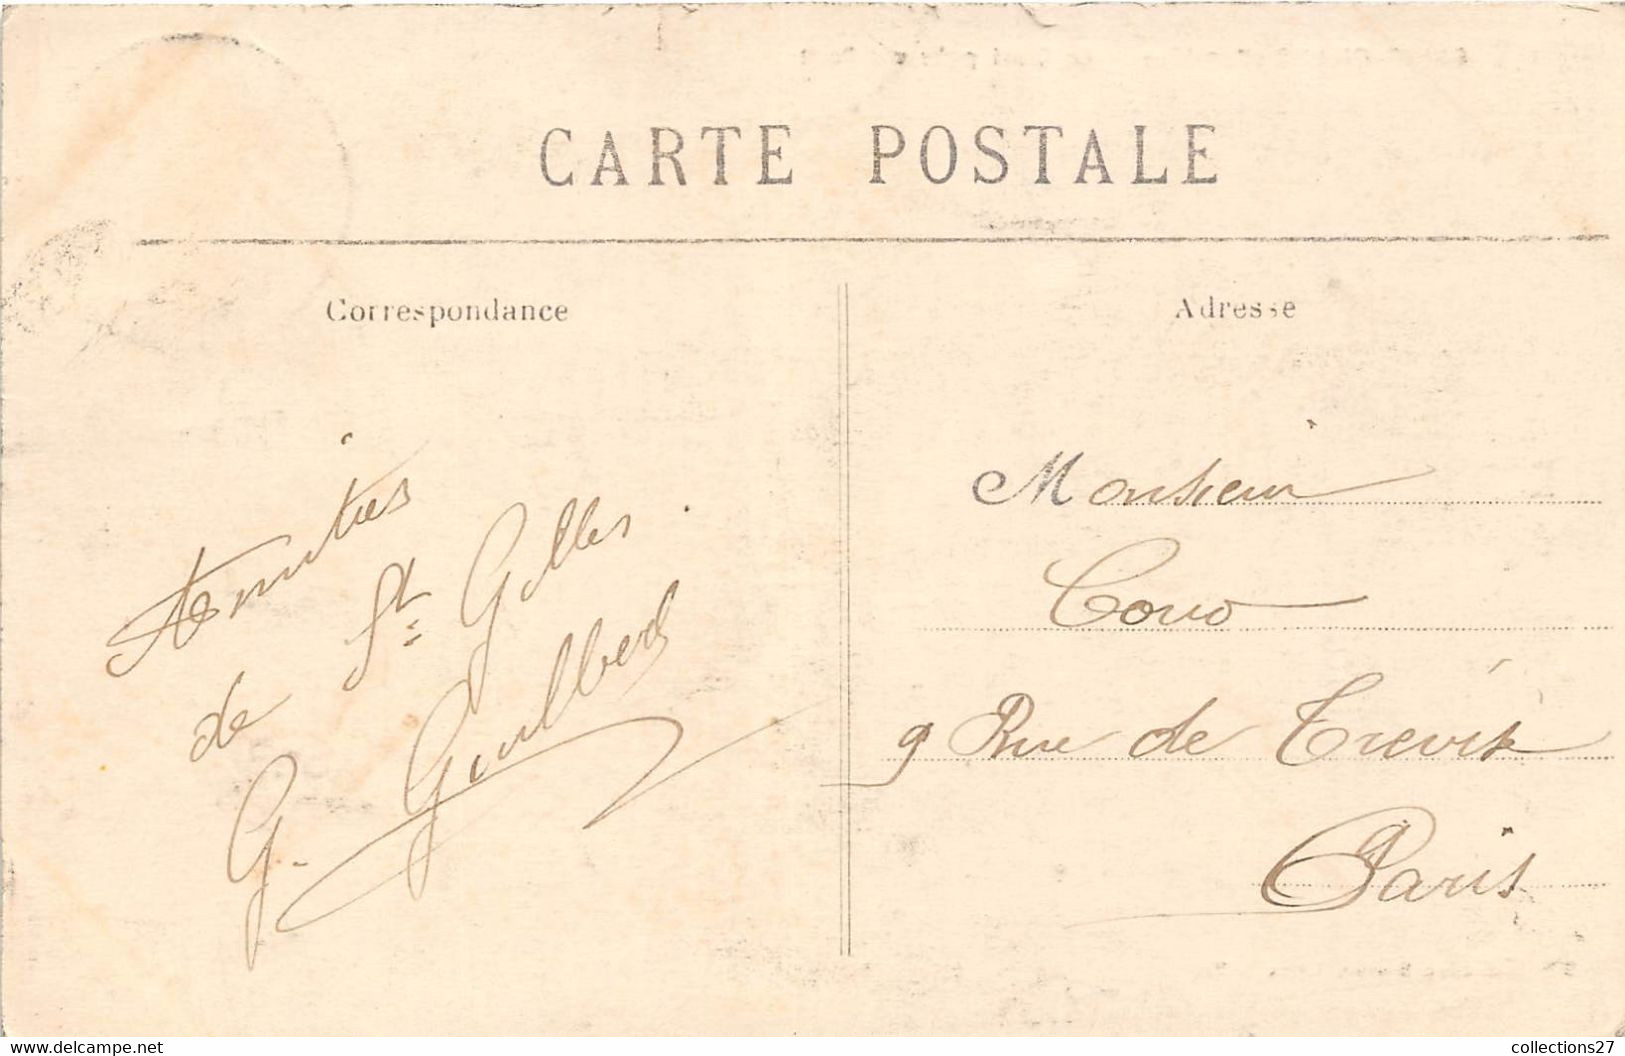 CARTE POSTALE
Correspondance
Amitiés
de St Gilles
G. Guilbert
Adresse
Monsieur
9 Rue de Trévise
Paris
www.delcampe.net
collections27